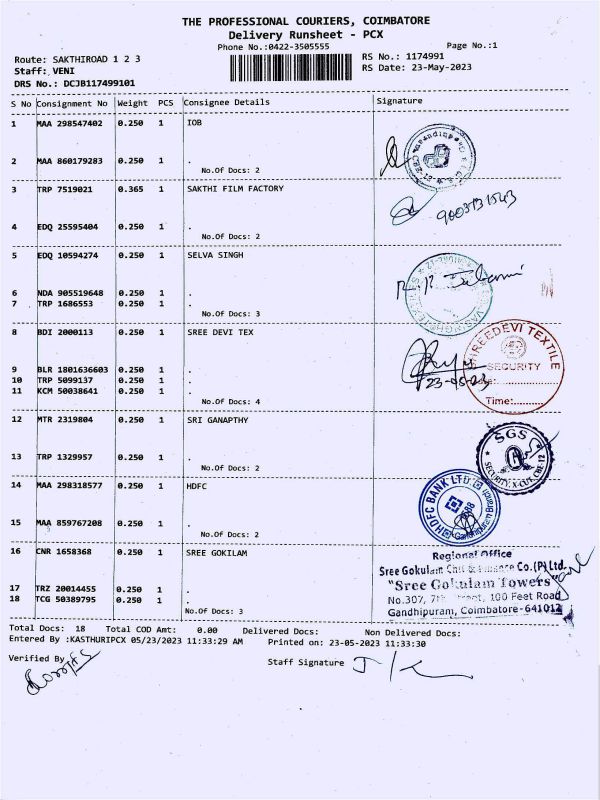 THE PROFESSIONAL COURIERS, COIMBATORE
Delivery Runsheet - PCX
Phone No.:0422-3505555
Page No.:1
Route: SAKTHIROAD 1 2 3
RS No.: 1174991
Staff: VENI
RS Date: 23-May-2023
DRS No.: DCJB117499101
S No Consignment No Weight PCS Consignee Details Signature
1 MAA 298547402 0.250 1 IOB
2 MAA 860179283 0.250 1 .
No.Of Docs: 2
3 TRP 7519021 0.365 1 SAKTHI FILM FACTORY
9003131543
4 EDQ 25595404 0.250 1 .
No.Of Docs: 2
5 EDQ 10594274 0.250 1 SELVA SINGH
6 NDA 905519648 0.250 1 .
7 TRP 1686553 0.250 1 .
No.Of Docs: 3
8 BDI 2000113 0.250 1 SREE DEVI TEX
SHREEDEVI TEXTILE
SECURITY
23-05-23
Time:..........
9 BLR 1801636603 0.250 1 .
10 TRP 5099137 0.250 1 .
11 KCM 50038641 0.250 1 .
No.Of Docs: 4
12 MTR 2319804 0.250 1 SRI GANAPTHY
SGS
13 TRP 1329957 0.250 1 .
No.Of Docs: 2
14 MAA 298318577 0.250 1 HDFC
HDFC BANK LTD
15 MAA 859767208 0.250 1 .
No.Of Docs: 2
16 CNR 1658368 0.250 1 SREE GOKILAM
Regional Office
Sree Gokulam Chit & Finance Co.(P) Ltd.
"Sree Gokulam Towers"
17 TRZ 20014455 0.250 1 .
No.307, 7th Street, 100 Feet Road
18 TCG 50389795 0.250 1 .
Gandhipuram, Coimbatore-641012
No.Of Docs: 3
Total Docs: 18 Total COD Amt: 0.00 Delivered Docs: Non Delivered Docs:
Entered By :KASTHURIPCX 05/23/2023 11:33:29 AM Printed on: 23-05-2023 11:33:30
Verified By
Staff Signature